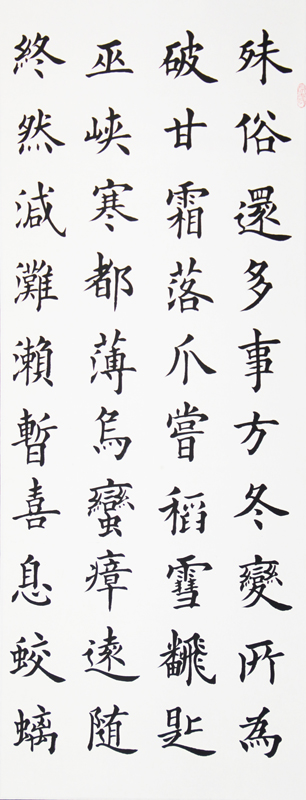 殊俗還多事方冬變所為
破甘霜落爪嘗稻雪翻匙
巫峽寒都薄烏蠻瘴遠随
終然減灘瀨暫喜息蛟螭